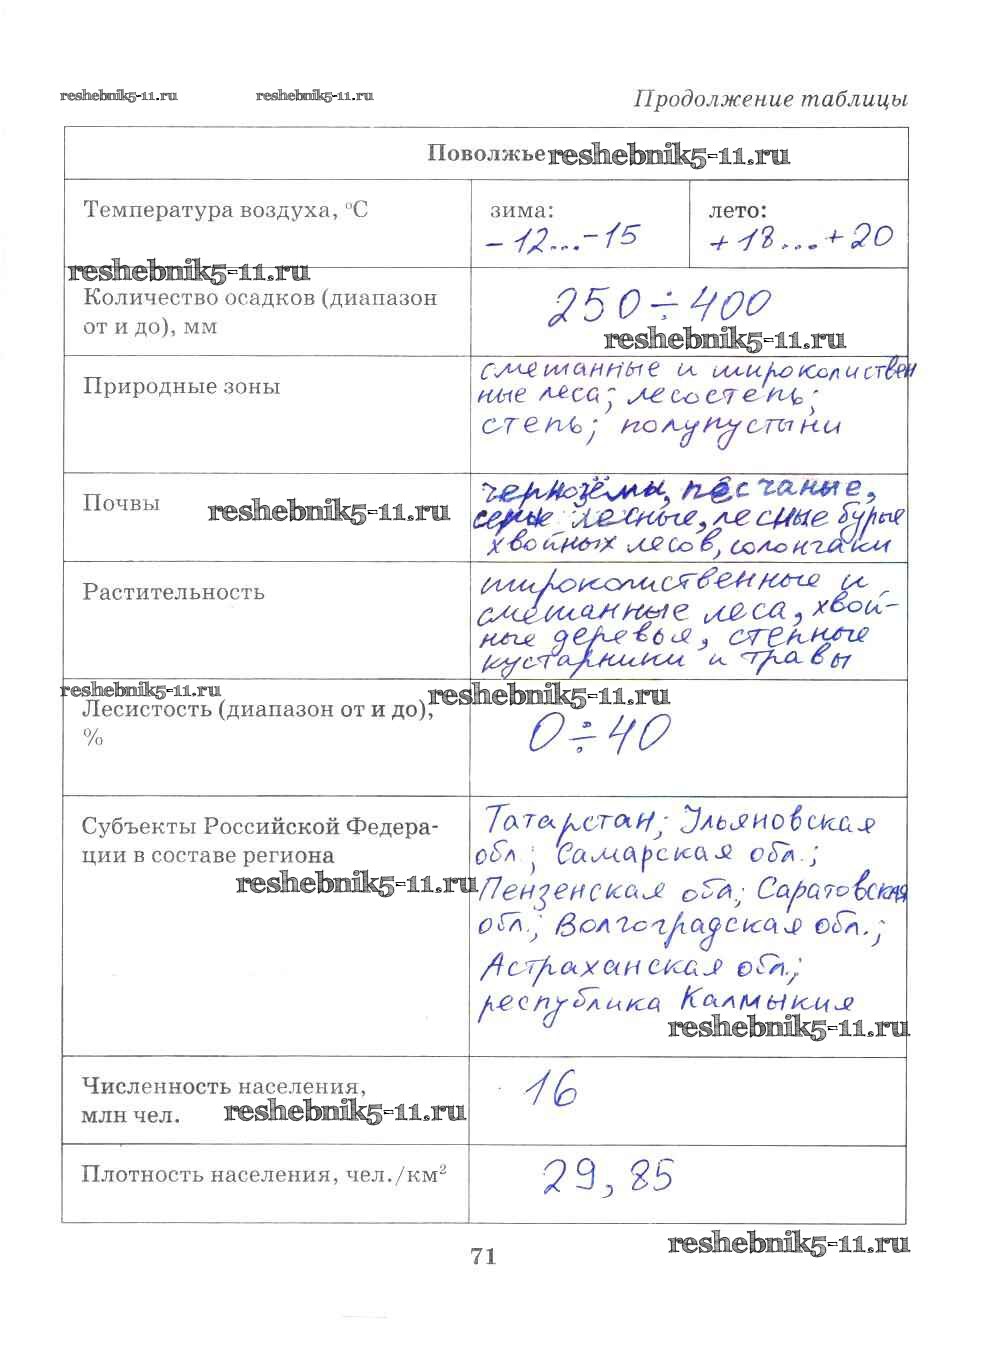 reshebnik5-11.ru reshebnik5-11.ru Продолжение таблицы
Поволжье reshebnik5-11.ru
Температура воздуха, °С
зима:
-12...-15
лето:
+18...+20
reshebnik5-11.ru
Количество осадков (диапазон
от и до), мм
250÷400
reshebnik5-11.ru
Природные зоны
смешанные и широколиствен
ные леса; лесостепь;
степь; полупустыни
Почвы
reshebnik5-11.ru
чернозёмы, песчаные,
серые лесные, лесные бурые
хвойных лесов, солончаки
Растительность
широколиственные и
смешанные леса, хвой-
ные деревья, степные
кустарники и травы
reshebnik5-11.ru
reshebnik5-11.ru
Лесистость (диапазон от и до),
%
0÷40
Субъекты Российской Федера-
ции в составе региона
reshebnik5-11.ru
Татарстан; Ульяновская
обл.; Самарская обл.;
Пензенская обл; Саратовская
обл.; Волгоградская обл.;
Астраханская обл.;
республика Калмыкия
reshebnik5-11.ru
Численность населения,
млн чел.
reshebnik5-11.ru
16
Плотность населения, чел./км²
29,85
reshebnik5-11.ru
71